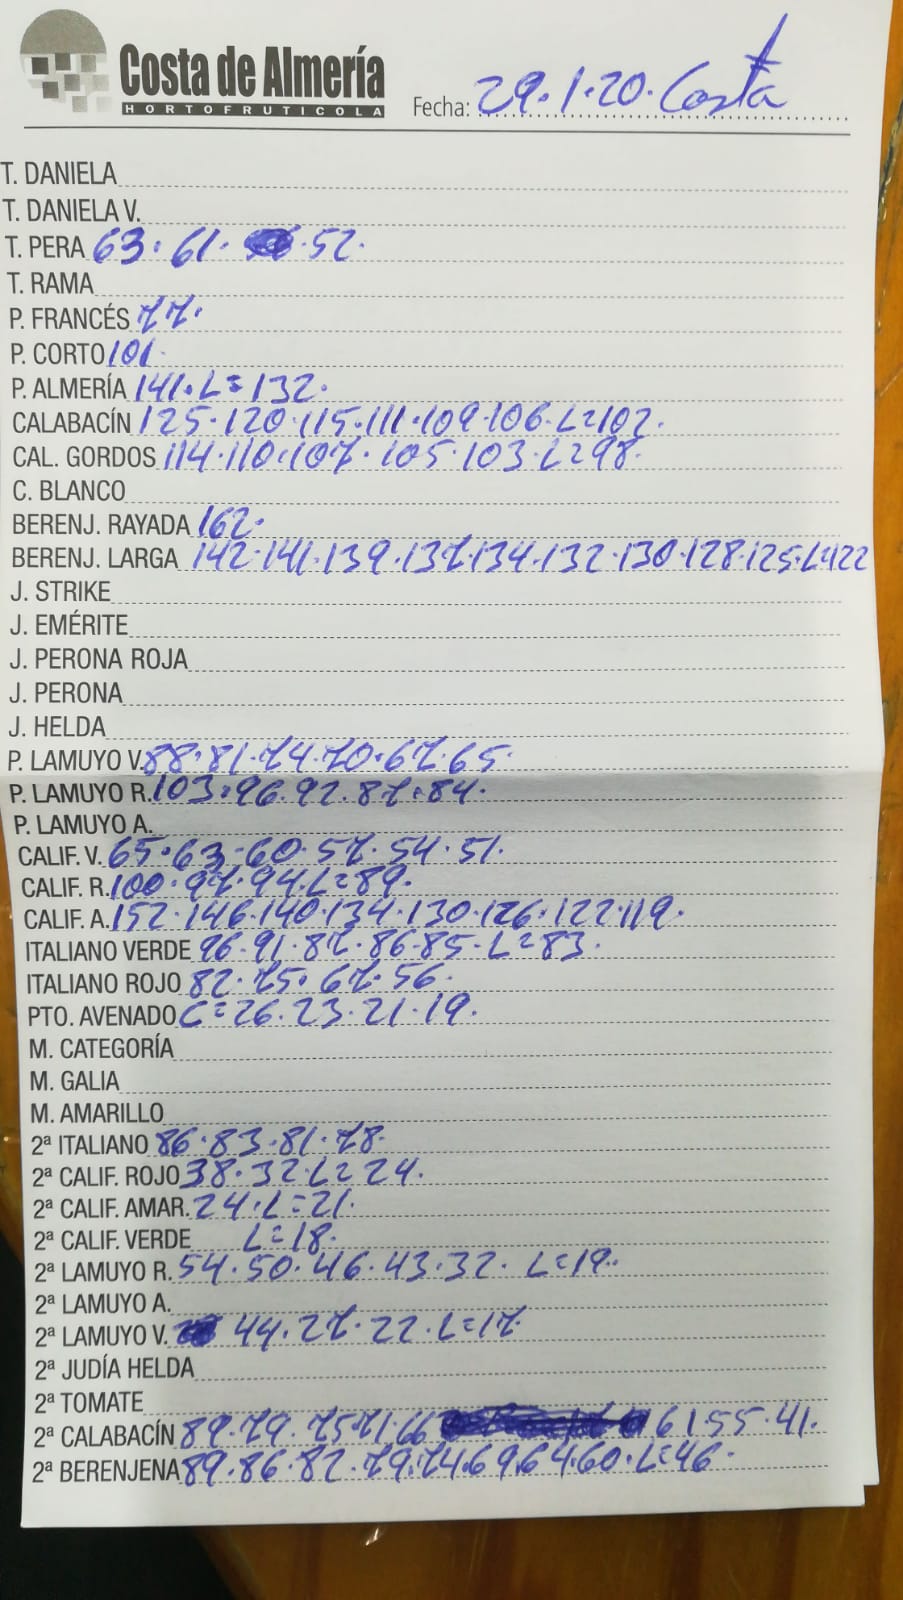 Costa de Almería
HORTOFRUTICOLA
Fecha: 29.1.20. Costa
T. DANIELA
T. DANIELA V.
T. PERA 63.61. 52.
T. RAMA
P. FRANCÉS 77.
P. CORTO 101.
P. ALMERÍA 141.L=132.
CALABACÍN 125.120.115.111.109.106.L=102.
CAL. GORDOS 114.110.107.105.103.L=98.
C. BLANCO
BERENJ. RAYADA 162.
BERENJ. LARGA 142.141.139.137.134.132.130.128.125.L=122
J. STRIKE
J. EMÉRITE
J. PERONA ROJA
J. PERONA
J. HELDA
P. LAMUYO V. 88.81.74.70.67.65.
P. LAMUYO R. 103.96.92.87.84.
P. LAMUYO A.
CALIF. V. 65.63.60.57.54.51.
CALIF. R. 100.97.94.L=89.
CALIF. A. 152.146.140.134.130.126.122.119.
ITALIANO VERDE 96.91.87.86.85.L=83.
ITALIANO ROJO 82.75.67.56.
PTO. AVENADO C=26.23.21.19.
M. CATEGORÍA
M. GALIA
M. AMARILLO
2ª ITALIANO 86.83.81.78.
2ª CALIF. ROJO 38.32.L=24.
2ª CALIF. AMAR. 24.L=21.
2ª CALIF. VERDE L=18.
2ª LAMUYO R. 54.50.46.43.32. L=19.
2ª LAMUYO A.
2ª LAMUYO V. 44.27.22.L=17.
2ª JUDÍA HELDA
2ª TOMATE
2ª CALABACÍN 89.79.75.71.66 61.55.41.
2ª BERENJENA 89.86.82.79.74.69.64.60.L=46.